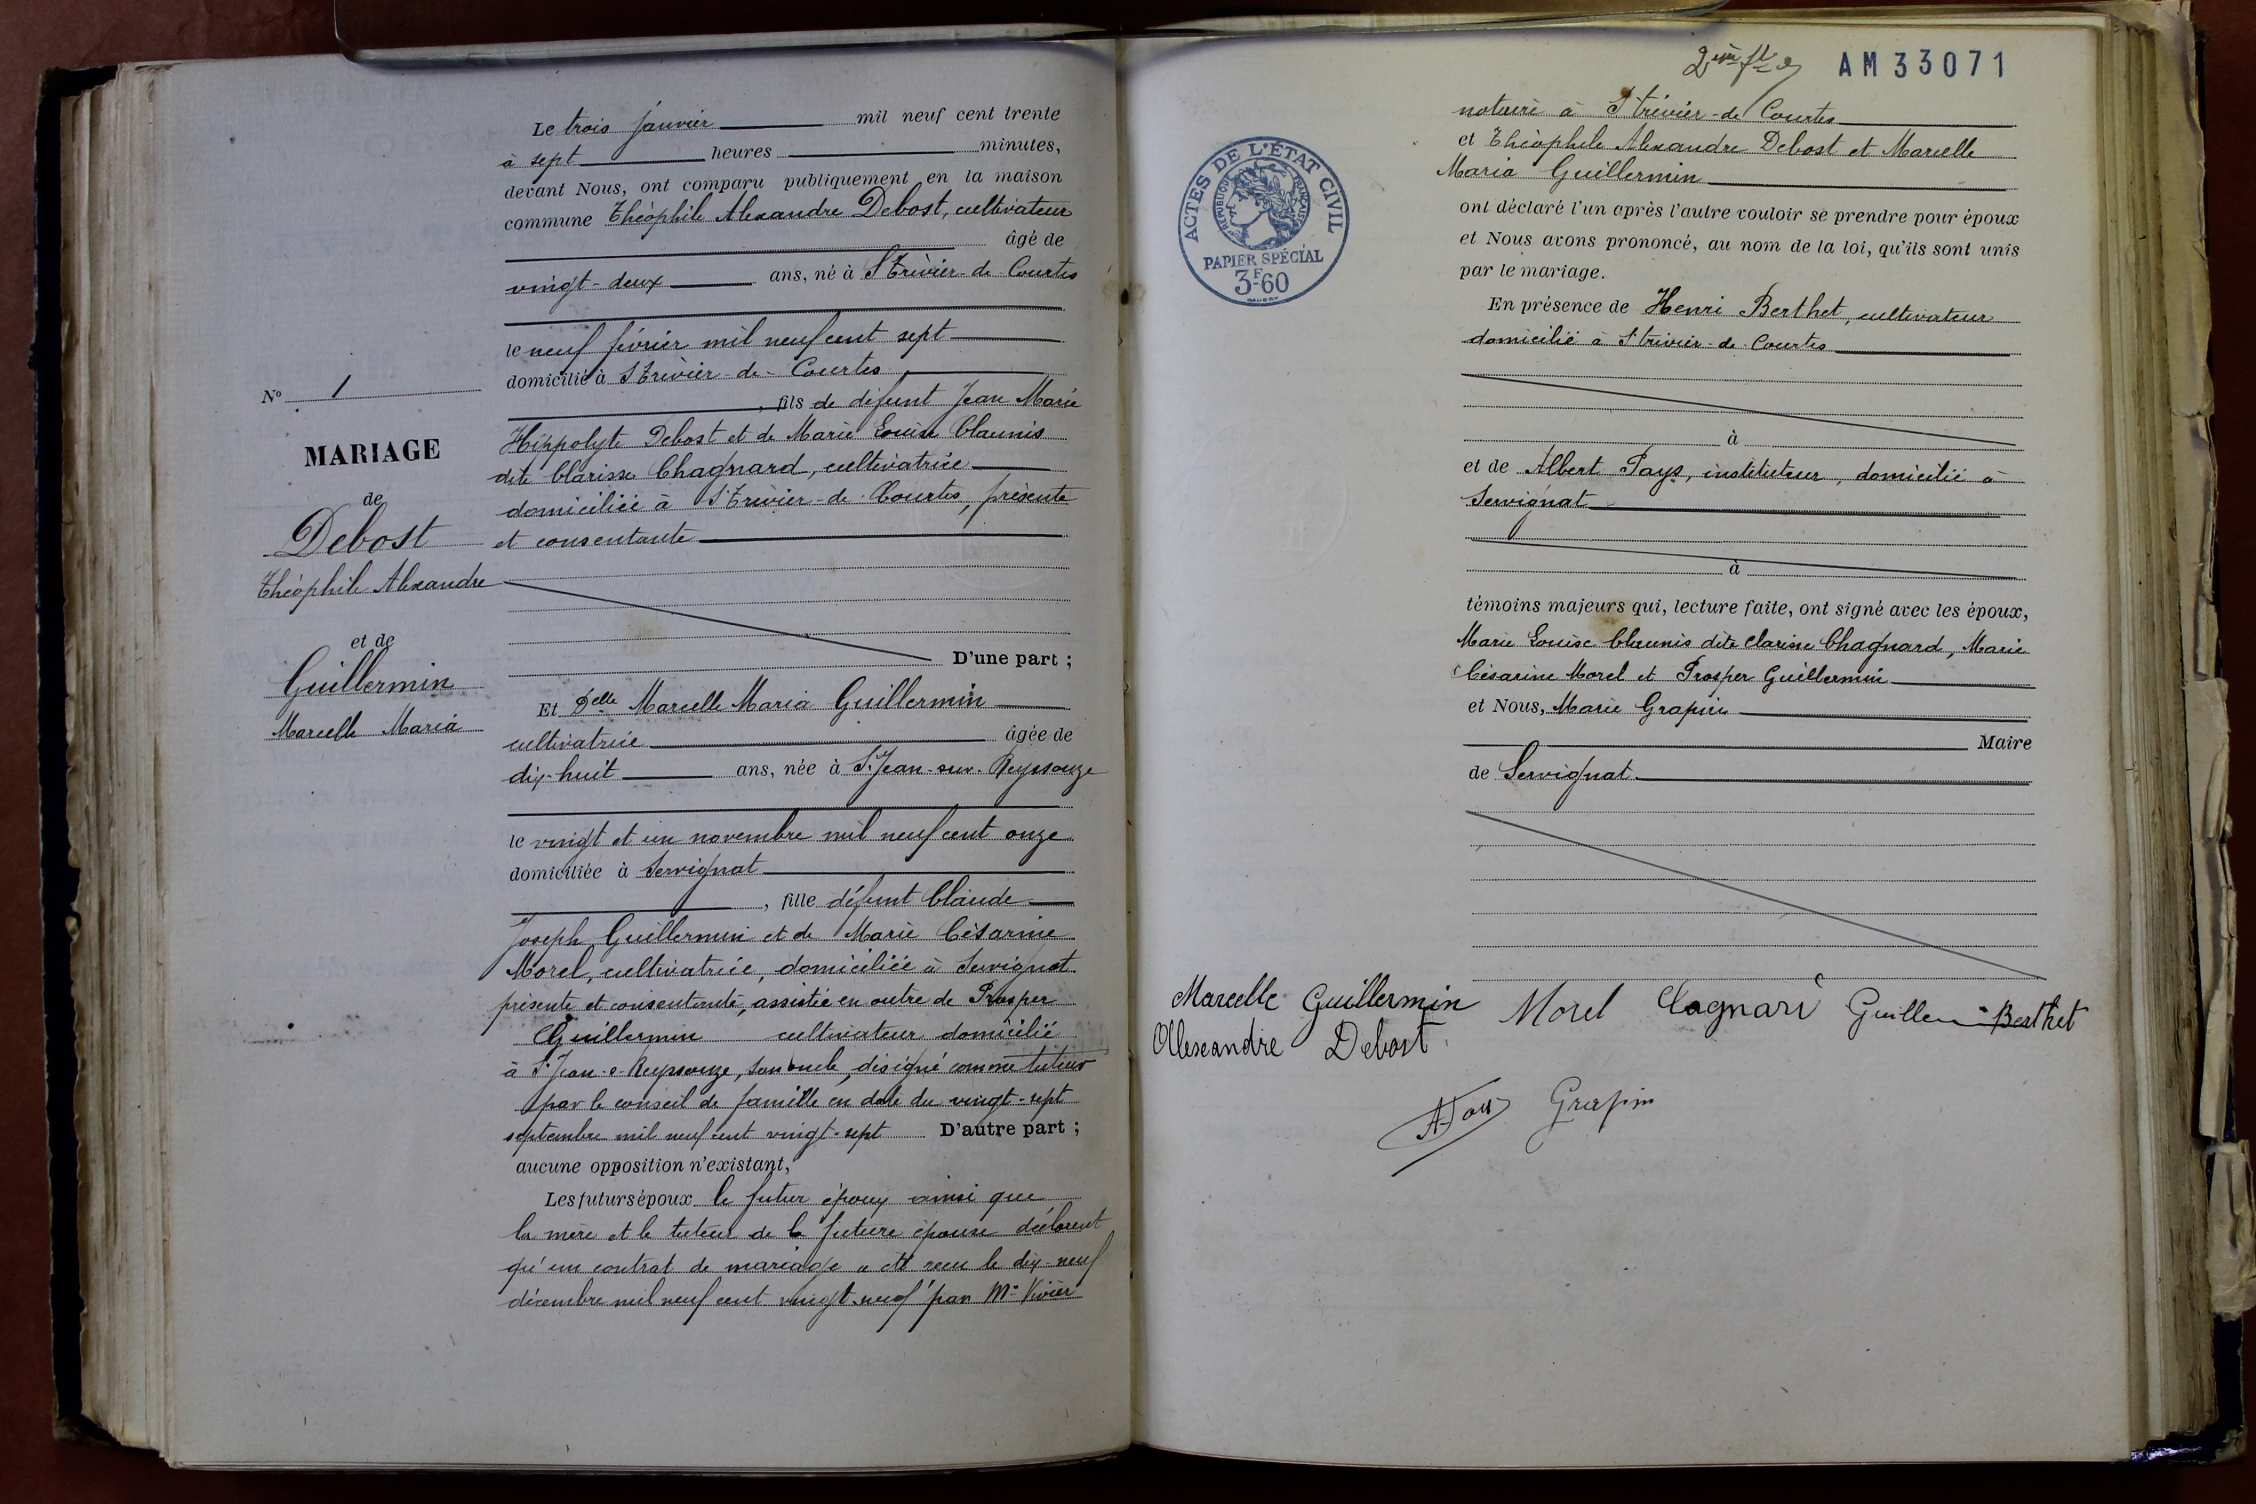 Le trois janvier mil neuf cent trente
à sept heures minutes,
devant Nous, ont comparu publiquement en la maison
commune Théophile Alexandre Debost, cultivateur
âgé de
vingt-deux ans, né à St Trivier-de-Courtes
le neuf février mil neuf cent sept
domicilié à St Trivier-de-Courtes
, fils de défunt Jean Marie
Hippolyte Debost et de Marie Louise Claunis
dite Clarisse Chagnard, cultivatrice
domiciliée à St Trivier-de-Courtes, présente
et consentante
D'une part ;
Et Delle Marcelle Maria Guillermin
cultivatrice âgée de
dix-huit ans, née à St Jean-sur-Reyssouze
le vingt et un novembre mil neuf cent onze
domiciliée à Servignat
, fille défunt Claude
Joseph Guillermin et de Marie Césarine
Morel, cultivatrice, domiciliée à Servignat
présente et consentante, assistée en outre de Prosper
Guillermin cultivateur domicilié
à St Jean-s-Reyssouze, son oncle, désigné comme tuteur
par le conseil de famille en date du vingt-sept
septembre mil neuf cent vingt-sept D'autre part ;
aucune opposition n'existant,
Les futurs époux le futur époux ainsi que
la mère et le tuteur de la future épouse déclarent
qu'un contrat de mariage a été reçu le dix-neuf
décembre mil neuf cent vingt-neuf par Me Vivier
No 1
MARIAGE
de
Debost
Théophile Alexandre
et de
Guillermin
Marcelle Maria
2ème flle
AM33071
ACTES DE L'ÉTAT CIVIL
RÉPUBLIQUE FRANÇAISE
PAPIER SPÉCIAL
3F60
notaire à St Trivier-de-Courtes
et Théophile Alexandre Debost et Marcelle
Maria Guillermin
ont déclaré l'un après l'autre vouloir se prendre pour époux
et Nous avons prononcé, au nom de la loi, qu'ils sont unis
par le mariage.
En présence de Henri Berthet, cultivateur
domicilié à St Trivier-de-Courtes
à
et de Albert Pays, instituteur, domicilié à
Servignat
à
témoins majeurs qui, lecture faite, ont signé avec les époux,
Marie Louise Claunis dite Clarisse Chagnard, Marie
Césarine Morel et Prosper Guillermin
et Nous, Marie Grapin
Maire
de Servignat
Marcelle Guillermin Morel Guillermin Berthet
Debost
Grapin